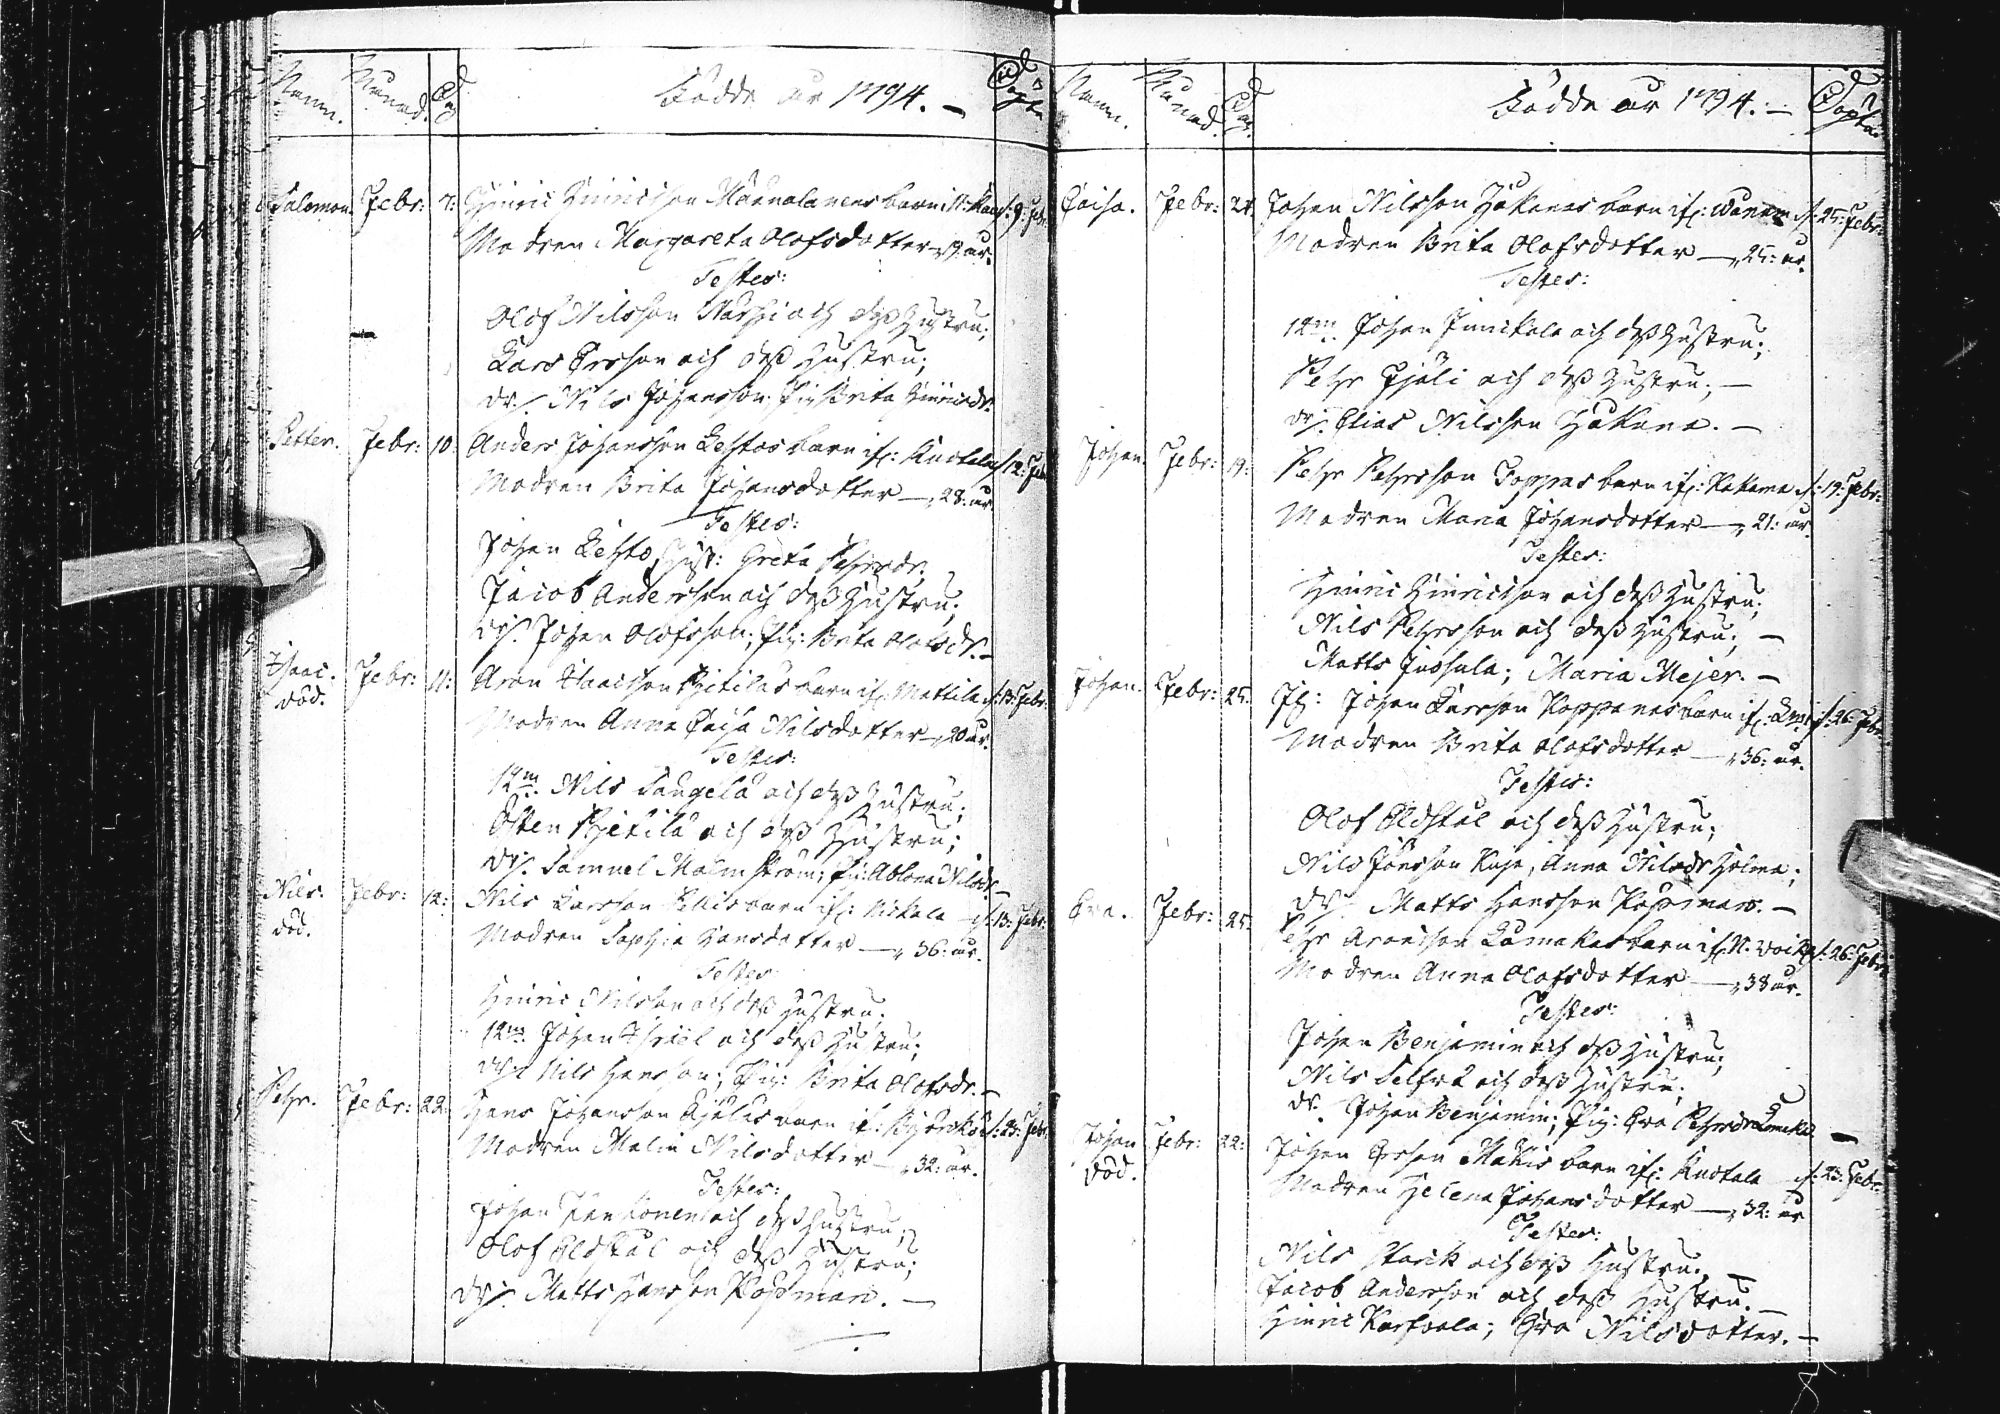 Namn. Månad. Dag Födde år 1794. — Döpte
Salomon. Febr: 7: Hinric Hinricsson barn i N: d: 9: Febr
Modren Margareta Olofsdotter år.
Testes:
Olof Nilsson och dess Hustru;
Lars Ersson och dess Hustru;
dr: Nils Johansson Pig: Brita Hinricsdr.
Petter. Febr: 10: Anders Johansson Lehtos barn if: Kuotala d: 12: Feb
Modren Brita Johansdotter — 28: år.
Testes:
Johan Lehto, Hust: Greta Pehrsdr.
Jacob Andersson och dess Hustru;
dr: Johan Olofsson; Pig: Brita Olofsdr. —
Isaac. Febr: 11: Aron Isacsson Kjetilas barn if: Mattila d: 13: Febr:
död.
Modren Anna Caisa Nilsdotter — 20 år.
Testes:
12m: Nils Sangela och dess Hustru;
Östen Kjetila och dess Hustru;
dr: Samuel Malmström; Pig: Ablona Nilsdr —
Nils. Febr: 12: Nils Larsson barn if: Niskala — d: 13: Febr:
död.
Modren Sophia Hansdotter — 36: år.
Testes
Hinric Nilsson och dess Hustru;
12m: Johan och dess Hustru;
dr: Nils Hansson; Pig: Brita Olofsdr. —
Pehr. Febr: 22: Hans Johansson barn if: Björckö d: 23: Febr
Modren Malin Nilsdotter — 32: år.
Testes:
Johan och dess Hustru;
Olof Eldstål och dess Hustru;
dr: Matts Hansson Kossman. —
Namn. Månad. Dag. Födde år 1794. — Döpta
Caisa. Febr: 24. Johan Nilsson Hakanas barn if: d: 25: Febr:
Modren Brita Olofsdotter — 25: år.
Testes:
12m: Johan Junickala och dess Hustru;
Pehr och dess Hustru; —
dr: Elias Nilsson Hakana. —
Johan. Febr: 19: Pehr Pehrsson Poppas barn if: Kakama d: 19: Febr:
Modren Maria Johansdotter — 21: år.
Testes:
Hinric Hinricsson och dess Hustru;
Nils Pehrsson och dess Hustru; —
Matts Juosula; Maria Mejer. —
Johan. Febr: 25. Johan Larsson Koppanas barn if: d: 26: Febr.
Modren Brita Olofsdotter — 36: år.
Testes:
Olof Eldstål och dess Hustru;
Nils Jönsson Anna Nilsdr Holma;
dr: Matts Hansson Kossman. —
Eva. Febr: 25. Pehr Aronsson Lamakas barn if: N. d: 26: Febr:
Modren Anna Olofsdotter — 38 år.
Testes:
Johan Benjamin och dess Hustru;
Nils och dess Hustru;
dr. Johan Benjamin; Pig: Eva Pehrsdr —
Johan Febr: 22: Johan Ersson Makis barn if: Kuotala — d: 23: Febr:
död.
Modren Helena Johansdotter — 32: år
Testes:
Nils Starck och dess Hustru; —
Jacob Andersson och dess Hustru. —
Hinric Eva Nilsdotter. —